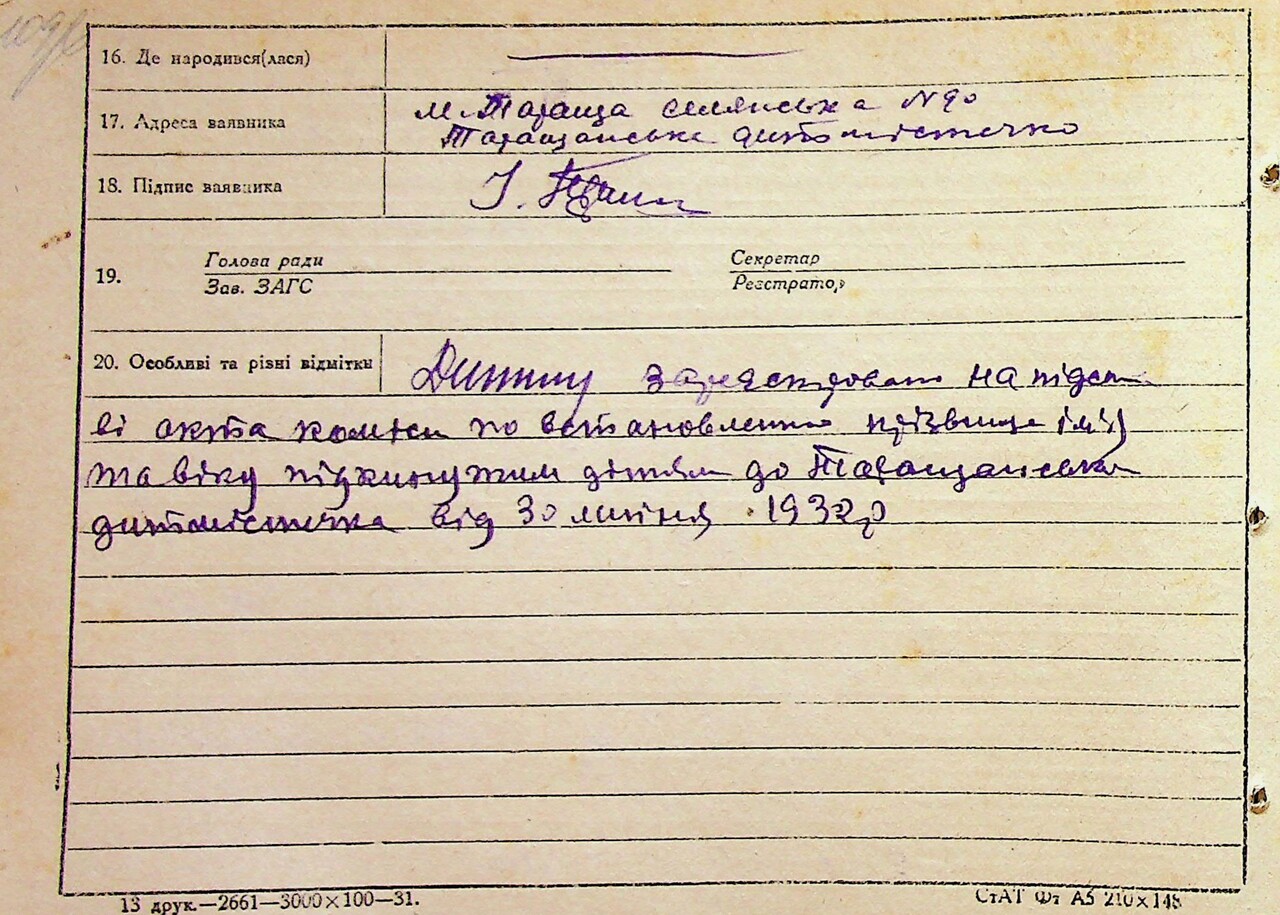 16. Де народився(лася)
17. Адреса заявника
м. Тараща селянська N 90
Таращанське дитомістечко
18. Підпис заявника
19.
Голова ради
Зав. ЗАГС
Секретар
Реєстратор
20. Особливі та різні відмітки
Дитину зареєстровано на підста
ві акта комісії по встановленню прізвище ім'я
та віку підкинутим дітям до Таращанська
дитмістечка від 30 липня 1932 р
13 друк.—2661—3000×100—31.
СтАТ Фт А5 210×148